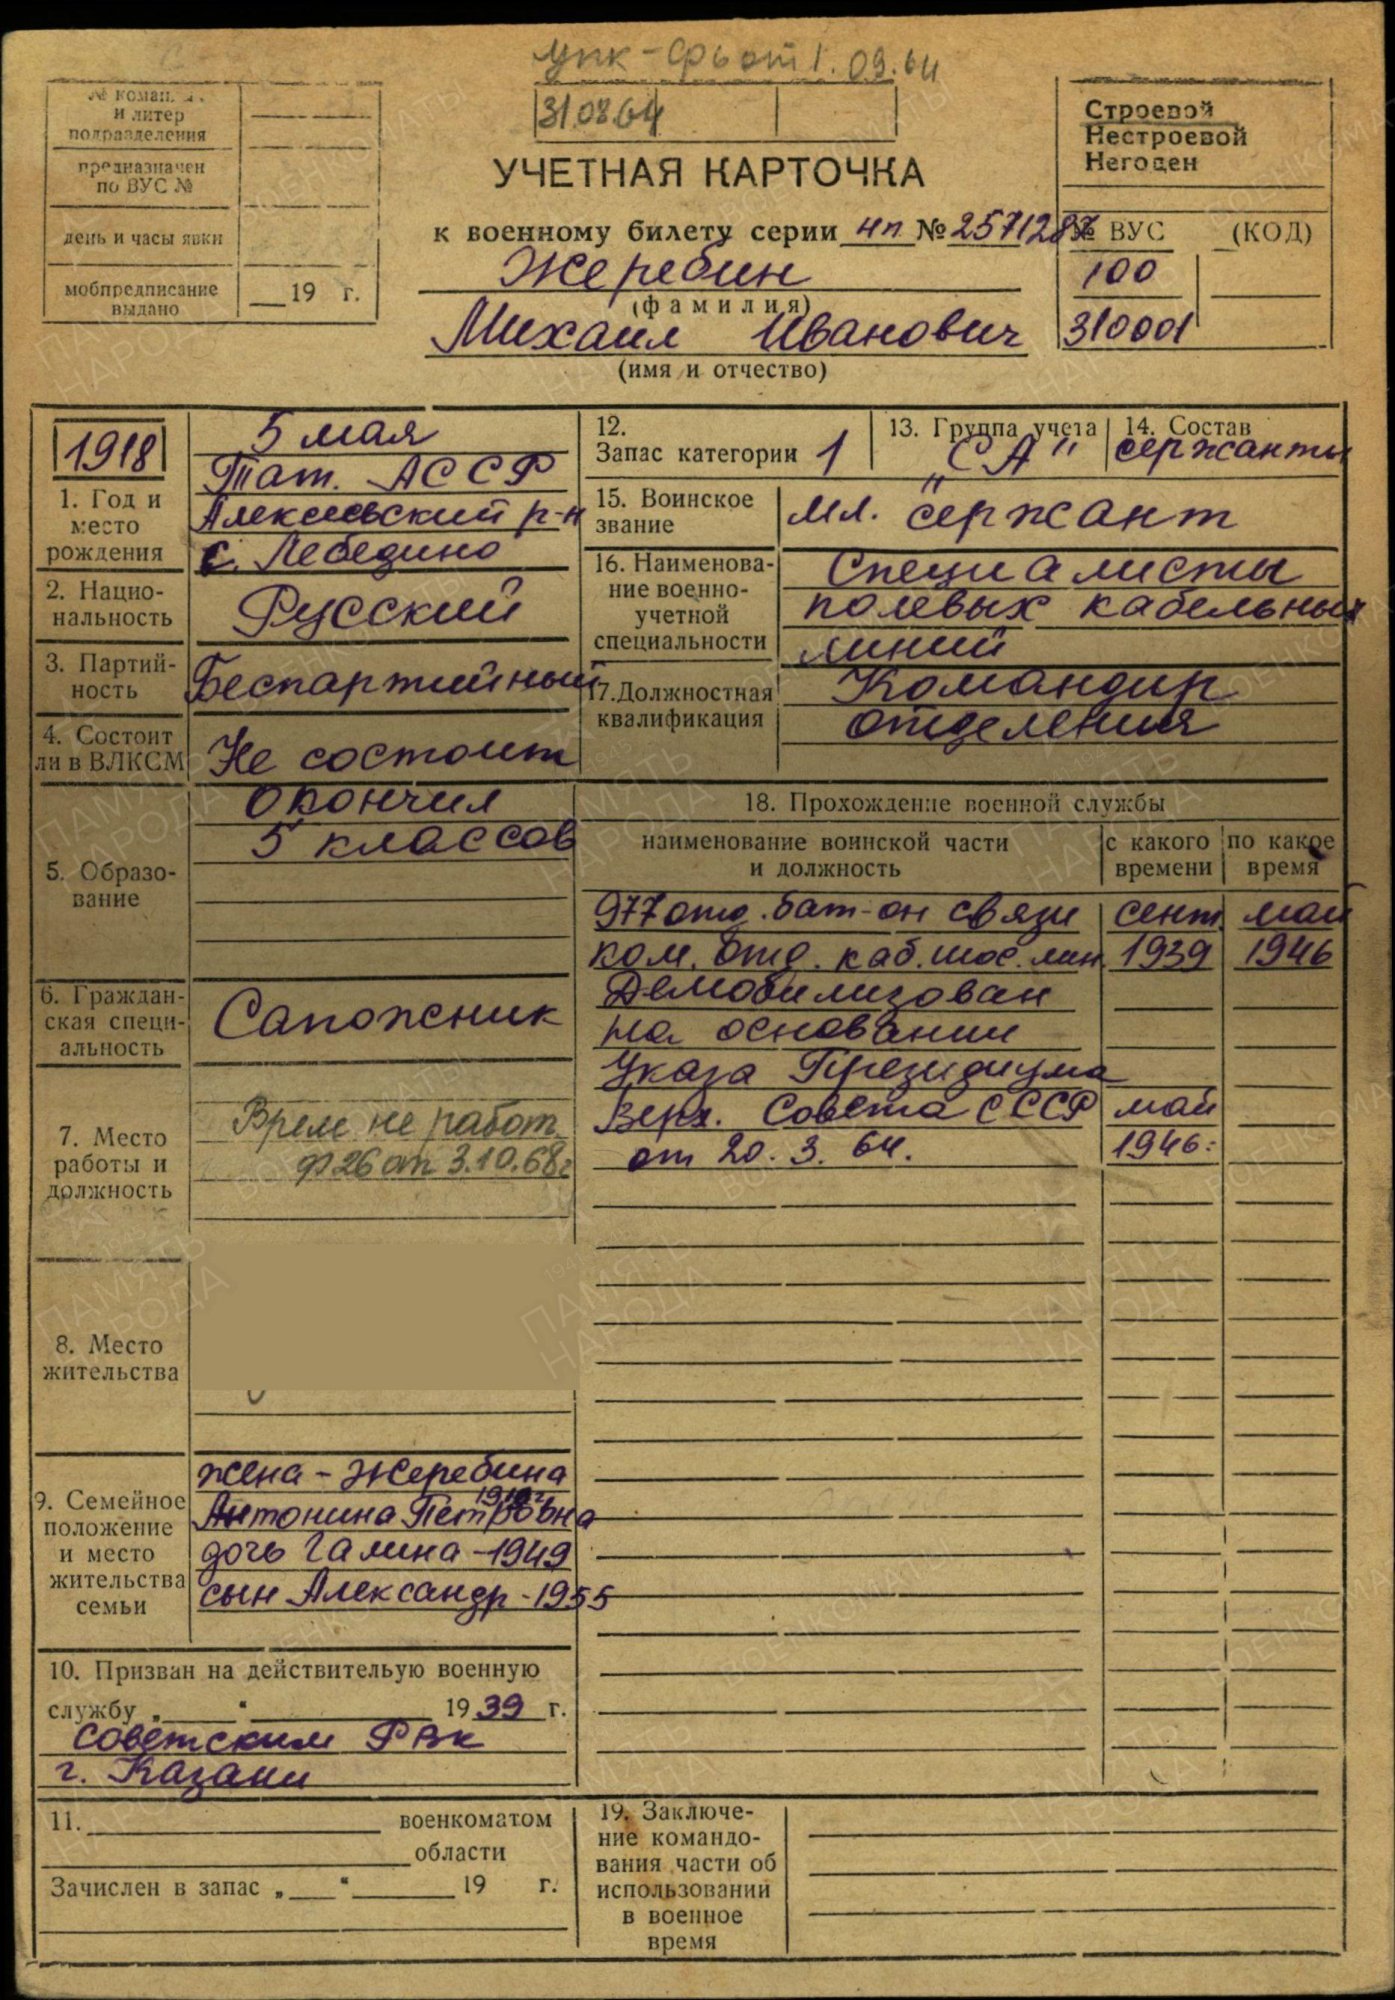 упк - ф6 от 1.09.64
31.08.64
№ коман.
и литер
подразделения
предназначен
по ВУС №
день и часы явки
мобпредписание
выдано
19 г.
Строевой
Нестроевой
Негоден
УЧЕТНАЯ КАРТОЧКА
к военному билету серии нп № 2571287
Жеребин
(фамилия)
Михаил Иванович
(имя и отчество)
№ ВУС (КОД)
100
310001
1918
1. Год и
место
рождения
5 мая
Тат. АССР
Алексеевский р-н
с. Лебедино
2. Нацио-
нальность
Русский
3. Партий-
ность
Беспартийный
4. Состоит
ли в ВЛКСМ
Не состоит
5. Образо-
вание
Окончил
5 классов
6. Граждан-
ская специ-
альность
Сапожник
7. Место
работы и
должность
Врем. не работ.
ф 26 от 3.10.68г
8. Место
жительства
9. Семейное
положение
и место
жительства
семьи
жена - Жеребина
Антонина Петровна
дочь Галина - 1949
сын Александр - 1955
10. Призван на действительую военную
службу „ “ 1939 г.
Советским РВК
г. Казани
11. военкоматом
области
Зачислен в запас „ “ 19 г.
12.
Запас категории 1
13. Группа учета
„СА"
14. Состав
сержанты
15. Воинское
звание
мл. сержант
16. Наименова-
ние военно-
учетной
специальности
Специалисты
полевых кабельных
линий
17. Должностная
квалификация
Командир
отделения
18. Прохождение военной службы
наименование воинской части
и должность
с какого
времени
по какое
время
977 отд. бат-он связи сент. май
ком. отд. каб. шос. лин. 1939 1946
Демобилизован
на основании
Указа Президиума
Верх. Совета СССР май
от 20. 3. 64. 1946.
19. Заключе-
ние командо-
вания части об
использовании
в военное
время
ПАМЯТЬ
НАРОДА
ВОЕНКОМАТЫ